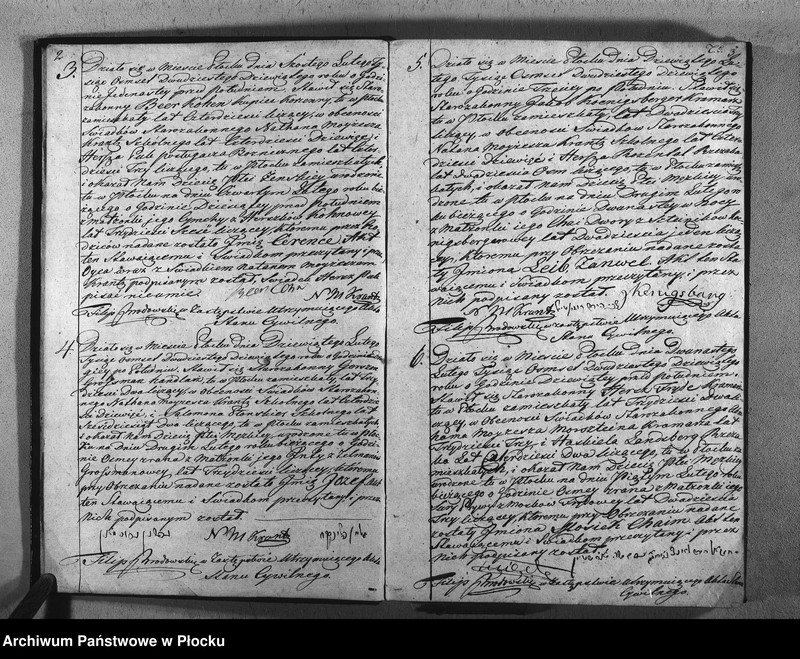 2
3. Działo się w Mieście Płocku dnia Szóstego Lutego Ty-
siąc Osmset Dwudziestego Dziewiątego roku o Godzi-
nie Jedenastey przed południem. Stawił się Staro-
zakonny Beer Kohen kupiec korzenny, tu w Płocku
zamieszkały lat Czterdzieści liczący w obecności
Świadków Starozakonnego Nathana Moyżesza
Krantz Szkolnego lat Czterdzieści Dziewięć, i
lat czter-
dzieści Trzy liczącego, tu w Płocku zamieszkałych
i okazał Nam Dziecię Płci Żeńskiey urodzone
tu w Płocku na dniu Czwartym Lutego roku bie-
żącego o Godzinie Dziewiątey przed południem
z Małżonki jego
lat Trzydzieści Sześć liczącey, któremu przez Ro-
dziców nadane zostało Imię Cerence. Akt
ten Stawaiącemu i Świadkom przeczytany i przez
Oyca wraz z Świadkiem Natanem Moyżeszem
Krantz podpisanym został. Świadek Hersz
pisać nieumie
Beer Cohn N M Krantz
Filip Brodowski w Zastępstwie Utrzymuiącego Akta
Stanu Cywilnego.
4. Działo się w Mieście Płocku dnia Dziewiątego Lutego
Tysiąc Osmset Dwudziestego dziewiątego roku o Godzinie
po Południu. Stawił się Starozakonny
Handlarz, tu w Płocku zamieszkały, lat Trzy-
dzieści dwa liczący w obecności Świadków Starozakon-
nego Nathana Moyżesza Krantz Szkolnego lat Czterdzie-
ści dziewięć, i Salomona Szkolnego lat
Sześćdziesiąt dwa liczącego, tu w Płocku zamieszkałych
i okazał Nam Dziecię Płci Męzkiey, urodzone tu w Płoc-
ku na Dniu Drugim Lutego roku bieżącego o Godzi-
nie Osmey z rana z Małżonki jego
lat Trzydzieści liczącey, któremu
przy Obrzezaniu nadane zostało Imię Jozef. Akt
ten Stawaiącemu i Świadkom przeczytany i przez
Nich podpisanym został.
N M Krantz
Filip Brodowski w Zastępstwie Utrzymuiącego Akta
Stanu Cywilnego.
3
5. Działo się w Mieście Płocku Dnia Dziewiątego Lu-
tego Tysiąc Osmset Dwudziestego Dziewiątego
roku o Godzinie Trzeciey po Południu. Stawił się
Starozakonny Jakob Koenigsberger Kramarz
tu w Płocku zamieszkały, lat Dwadzieścia Trzy
liczący, w obecności Świadków Starozakonnego
Natana Moyżesza Krantz Szkolnego lat Czter-
dzieści dziewięć i Hersza
lat Dwadzieścia Osm liczącego, tu w Płocku zamiesz-
kałych, i okazał Nam Dziecię Płci Męzkiey uro-
dzone tu w Płocku na Dniu Drugim Lutego ro-
ku bieżącego o Godzinie Dwunastey w Nocy
z Małżonki jego
lat Dwadzieścia jeden liczą-
cey, któremu przy Obrzezaniu nadane zosta-
ły Imiona Leib Zanwel. Akt ten Sta-
waiącemu i Świadkom przeczytany, i przez
Nich podpisany został.
N M Krantz J Kenigsberg
Filip Brodowski w zastępstwie Utrzymuiącego Akta
Stanu Cywilnego.
6. Działo się w Mieście Płocku Dnia Dwunastego
Lutego Tysiąc Osmset Dwudziestego Dziewiątego
roku o Godzinie Dziewiątey przed południem.
Stawił się Starozakonny
tu w Płocku zamieszkały, lat Trzydzieści
w obecności Świadków Starozakonnego Abra-
hama Moyżesza Kramarza lat
Trzydzieści Trzy, i Haskiela Landsberg
lat Czterdzieści Dwa liczącego, tu w Płocku za-
mieszkałych, i okazał Nam Dziecię Płci Męzkiey
urodzone tu w Płocku na dniu Piątym Lutego roku
bieżącego o Godzinie Osmey z rana z Małżonki iego
lat Dwadzieścia
Trzy liczącey, któremu przy Obrzezaniu nadane
zostały Imiona Mosiek Chaim. Akt ten
Stawaiącemu i Świadkom przeczytany i przez
Nich podpisany został.
Filip Brodowski w Zastępstwie Utrzymuiącego Akta Stanu
Cywilnego.
Archiwum Państwowe w Płocku